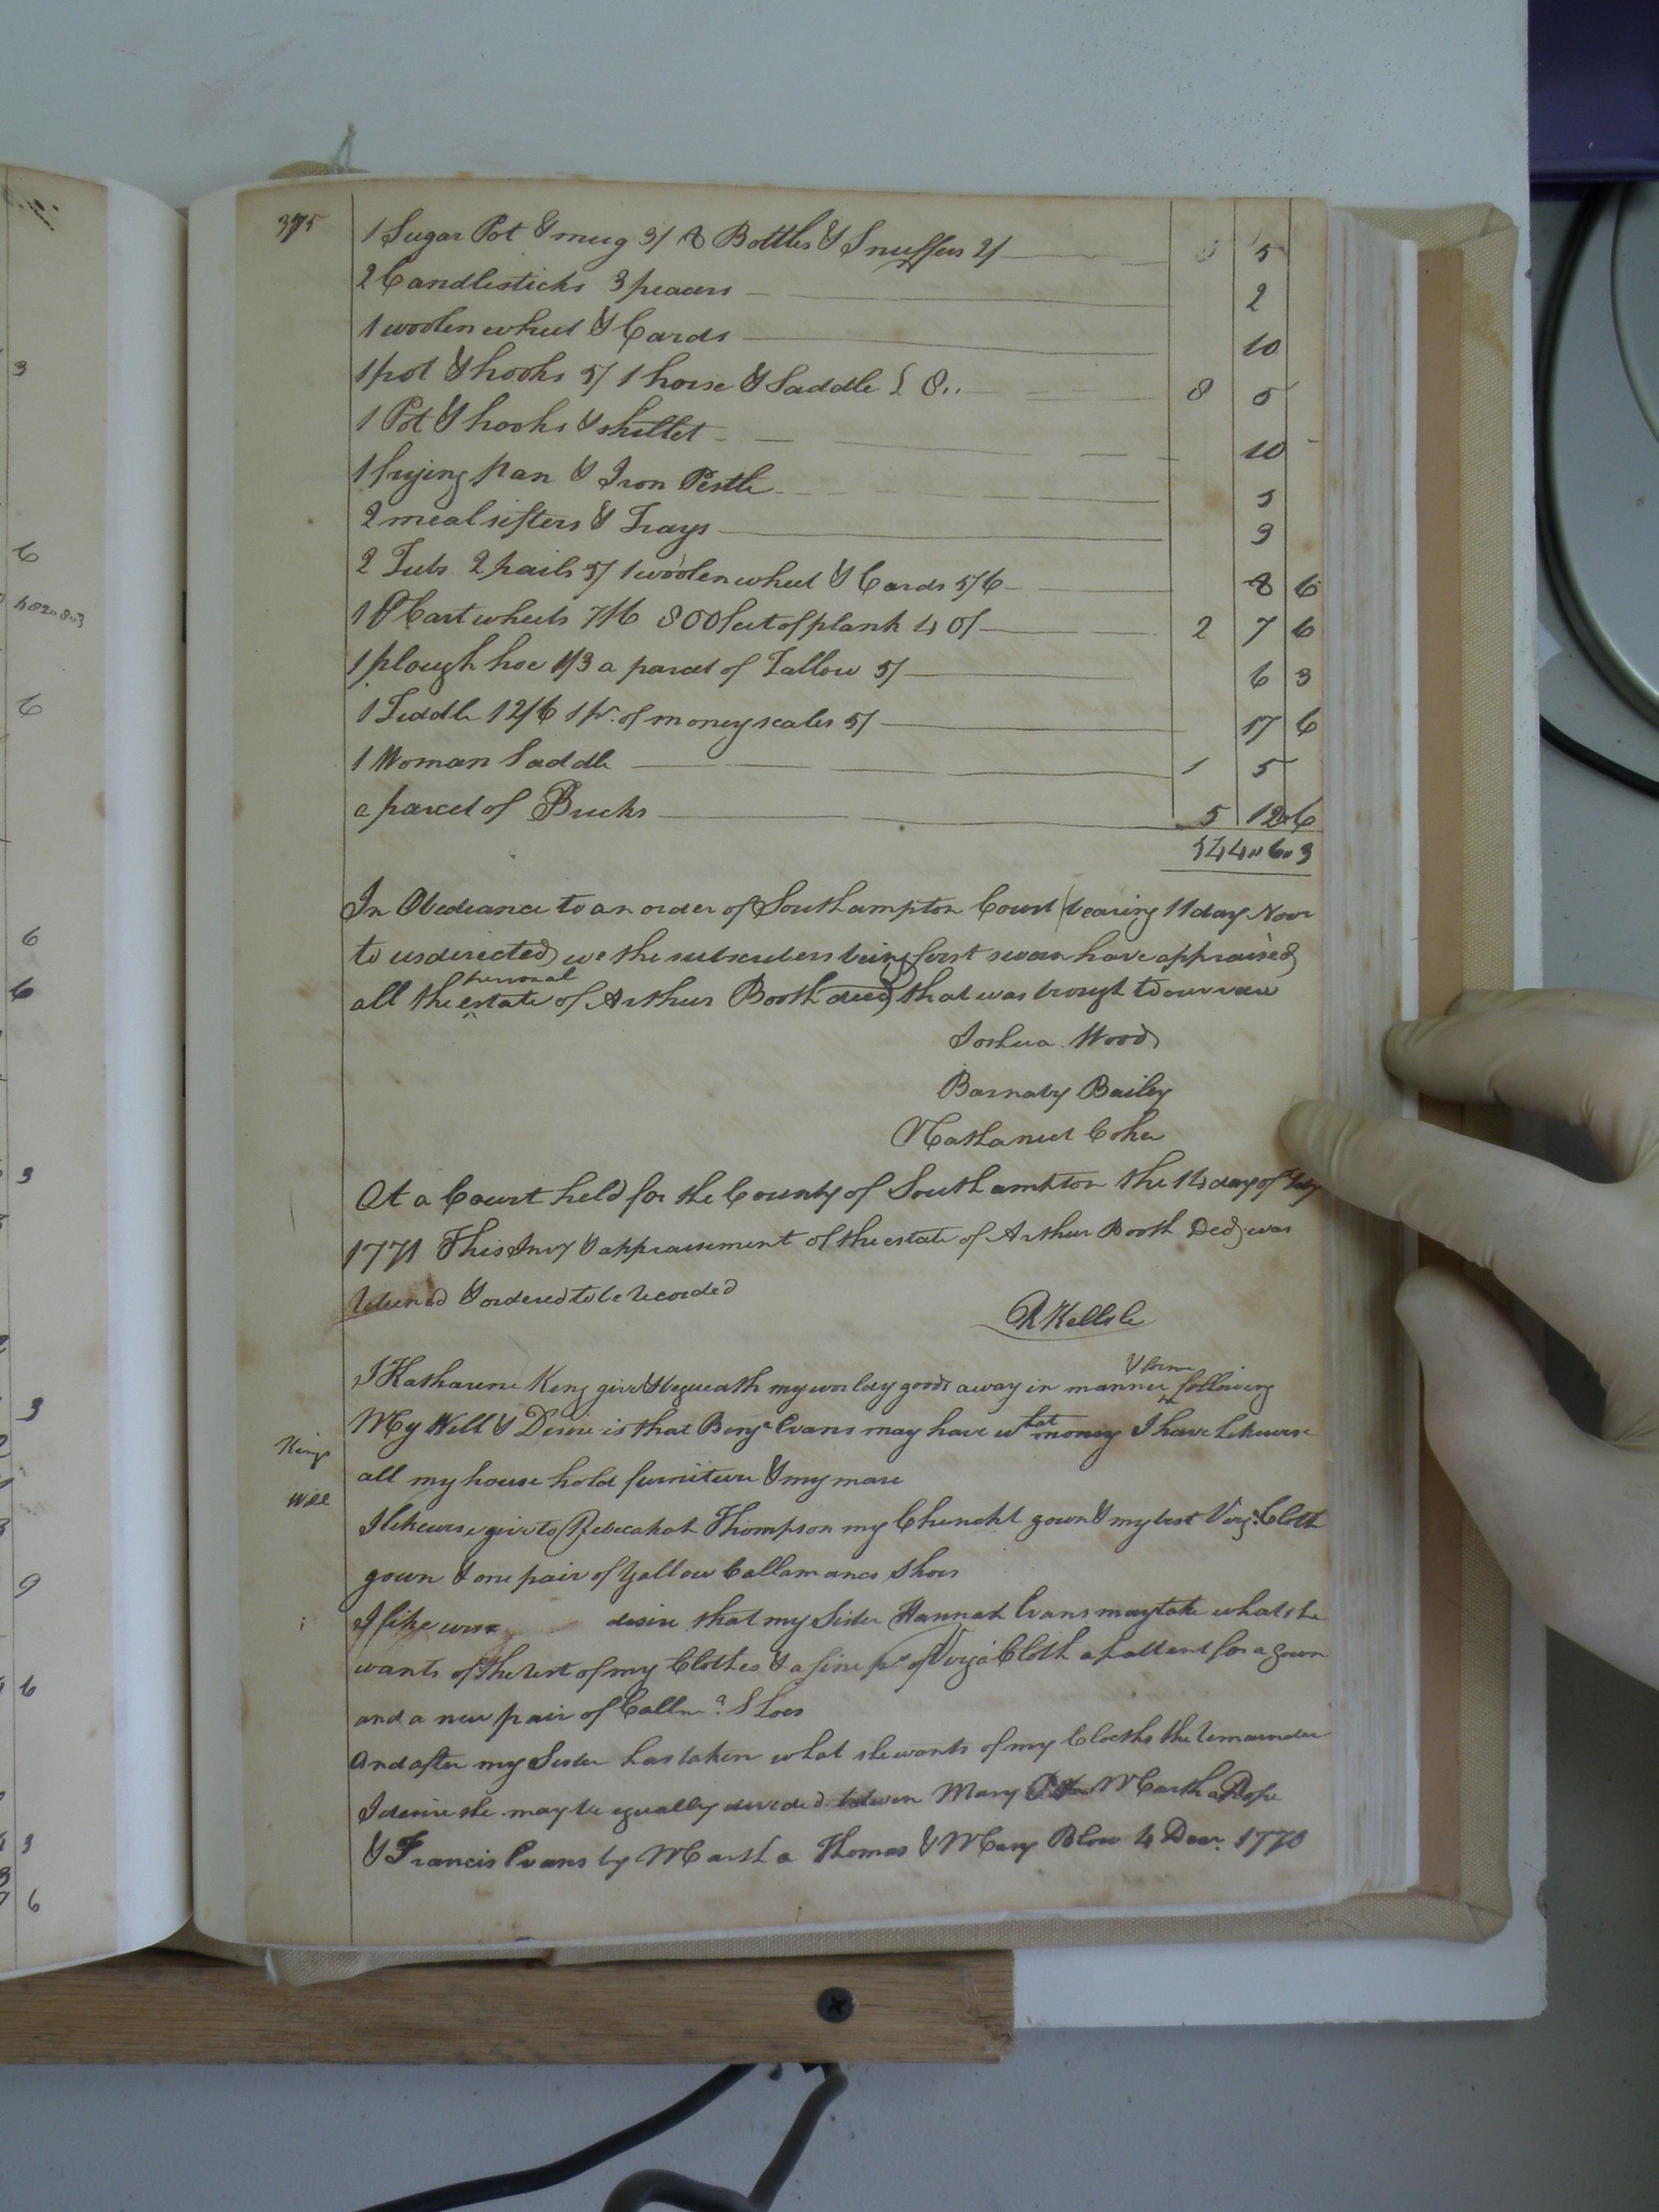 375
1 Sugar Pot & mug 3/ 8 Bottles & Snuffers 2/ 5
2 Candlesticks 3 2
1 woolen wheel & Cards 10
1 pot & hooks 5/ 1 horse & Saddle £ 8.. 8 5
1 Pot & hooks & skillet 10
1 frying pan & Iron Pestle 5
2 meal sifters & Trays 3
2 Tubs 2 pails 3/ 1 woolen wheel & Cards 5/6 8 6
1 P Cart wheels 7/6 800 feet of plank 40/ 2 7 6
1 plough hoe 1/3 a parcel of Tallow 5/ 6 3
1 Fiddle 12/6 1 pr. of money scales 5/ 17 6
1 Woman Saddle 1 5
a parcel of Bricks 5 12 6
544 " 6 " 3
In Obedeance to an order of Southampton Court (bearing 11 day Novr
to us directed) we the subscribers being first sworn have appraised
all the personal estate of Arthur Booth decd that was brough to our view
Joshua Wood
Barnaby Bailey
Nathaniel Coker
At a Court held for the County of Southamton the 14 day of
1771 This Invy & appraisement of the estate of Arthur Booth Decd was
returned & ordered to be recorded
R Kellsle
I Katharine King give & bequeath my worldy goods away in manner & form following
My Will & Desire is that Benja Evans may have what money I have Likewise
King
all my house hold furniture & my mare
Will
I likewise give to Rebecakah Thompson my Chinchl gown & my best Virg. Cloth
gown & one pair of Yallow Callamanco Shoes
I like wise desire that my Sister Hannah Evans may take what she
wants of the rest of my Clothes & a fine ps of Virga Cloth a pattent for a gown
and a new pair of Callma. Shoes
And after my Sister has taken what she wants of my Cloeths the remainder
I desire she may be equally devided between Mary Martha Pope
& Francis Evans by Martha Thomas & Mary Blow 4 Decr. 1770